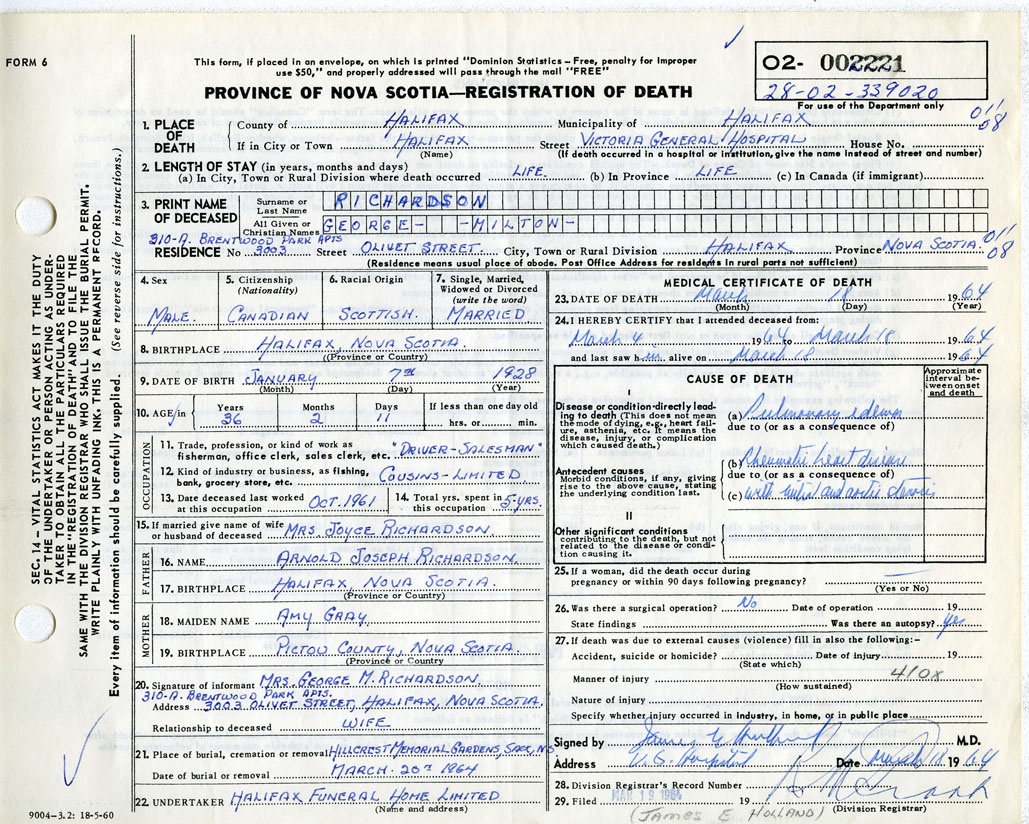 FORM 6
This form, if placed in an envelope, on which is printed "Dominion Statistics – Free, penalty for Improper
use $50," and properly addressed will pass through the mail "FREE"
PROVINCE OF NOVA SCOTIA—REGISTRATION OF DEATH
O2- 002221
28-02-339020
For use of the Department only
1. PLACE OF DEATH
County of HALIFAX Municipality of HALIFAX 011
08
If in City or Town HALIFAX Street VICTORIA GENERAL HOSPITAL House No.
(Name) (If death occurred in a hospital or institution, give the name instead of street and number)
2. LENGTH OF STAY (in years, months and days)
(a) In City, Town or Rural Division where death occurred LIFE. (b) In Province LIFE (c) In Canada (if immigrant)
3. PRINT NAME OF DECEASED
Surname or Last Name RICHARDSON
All Given or Christian Names GEORGE- -MILTON-
310-A. BRENTWOOD PARK APTS
RESIDENCE No 3003 Street OLIVET STREET. City, Town or Rural Division HALIFAX Province NOVA SCOTIA. 011
08
(Residence means usual place of abode. Post Office Address for residents in rural parts not sufficient)
4. Sex
MALE.
5. Citizenship
(Nationality)
CANADIAN
6. Racial Origin
SCOTTISH.
7. Single, Married,
Widowed or Divorced
(write the word)
MARRIED
8. BIRTHPLACE HALIFAX, NOVA SCOTIA.
(Province or Country)
9. DATE OF BIRTH JANUARY 7TH 1928
(Month) (Day) (Year)
10. AGE Years Months Days If less than one day old
36 2 11 hrs. or min.
OCCUPATION
11. Trade, profession, or kind of work as
fisherman, office clerk, sales clerk, etc. "DRIVER-SALESMAN"
12. Kind of industry or business, as fishing,
bank, grocery store, etc. COUSINS-LIMITED
13. Date deceased last worked
at this occupation OCT. 1961
14. Total yrs. spent in
this occupation 5-YRS.
15. If married give name of wife
or husband of deceased MRS. JOYCE RICHARDSON
FATHER
16. NAME ARNOLD JOSEPH RICHARDSON
17. BIRTHPLACE HALIFAX, NOVA SCOTIA.
(Province or Country)
MOTHER
18. MAIDEN NAME AMY GRAY
19. BIRTHPLACE PICTOU COUNTY, NOVA SCOTIA.
(Province or Country
20. Signature of informant MRS. GEORGE M. RICHARDSON.
310-A. BRENTWOOD PARK APTS.
Address 3003 OLIVET STREET, HALIFAX, NOVA SCOTIA.
Relationship to deceased WIFE
21. Place of burial, cremation or removal HILLCREST MEMORIAL GARDENS, SACK, NS
Date of burial or removal MARCH-20TH 1964
22. UNDERTAKER HALIFAX FUNERAL HOME LIMITED
(Name and address)
MEDICAL CERTIFICATE OF DEATH
23. DATE OF DEATH March 18 1964
(Month) (Day) (Year)
24. I HEREBY CERTIFY that I attended deceased from:
March 4 1964 to March 18 1964
and last saw him alive on March 18 1964
CAUSE OF DEATH
Approximate
interval be-
tween onset
and death
I
Disease or condition directly lead-
ing to death (This does not mean
the mode of dying, e.g., heart fail-
ure, asthenia, etc. It means the
disease, injury, or complication
which caused death.)
(a) Pulmonary edema
due to (or as a consequence of)
Antecedent causes
Morbid conditions, if any, giving
rise to the above cause, stating
the underlying condition last.
(b) Rheumatic heart disease
due to (or as a consequence of)
(c) with mitral and aortic stenosis
II
Other significant conditions
contributing to the death, but not
related to the disease or condi-
tion causing it.
25. If a woman, did the death occur during
pregnancy or within 90 days following pregnancy? —
(Yes or No)
26. Was there a surgical operation? No Date of operation 19
State findings Was there an autopsy? Yes
27. If death was due to external causes (violence) fill in also the following:-
Accident, suicide or homicide? Date of injury 19
(State which)
Manner of injury 410X
(How sustained)
Nature of injury
Specify whether injury occurred in industry, in home, or in public place
Signed by M.D.
Address V. G. Hospital Date March 18 1964
28. Division Registrar's Record Number
29. Filed MAR 19 1964 19
(Division Registrar)
(JAMES E. HOLLAND)
SEC. 14 – VITAL STATISTICS ACT MAKES IT THE DUTY
OF THE UNDERTAKER OR PERSON ACTING AS UNDER-
TAKER TO OBTAIN ALL THE PARTICULARS REQUIRED
IN THE "REGISTRATION OF DEATH" AND TO FILE THE
SAME WITH THE DIVISION REGISTRAR WHO SHALL ISSUE THE BURIAL PERMIT.
WRITE PLAINLY WITH UNFADING INK. THIS IS A PERMANENT RECORD.
Every item of information should be carefully supplied. (See reverse side for instructions.)
9004–3.2: 18-5-60